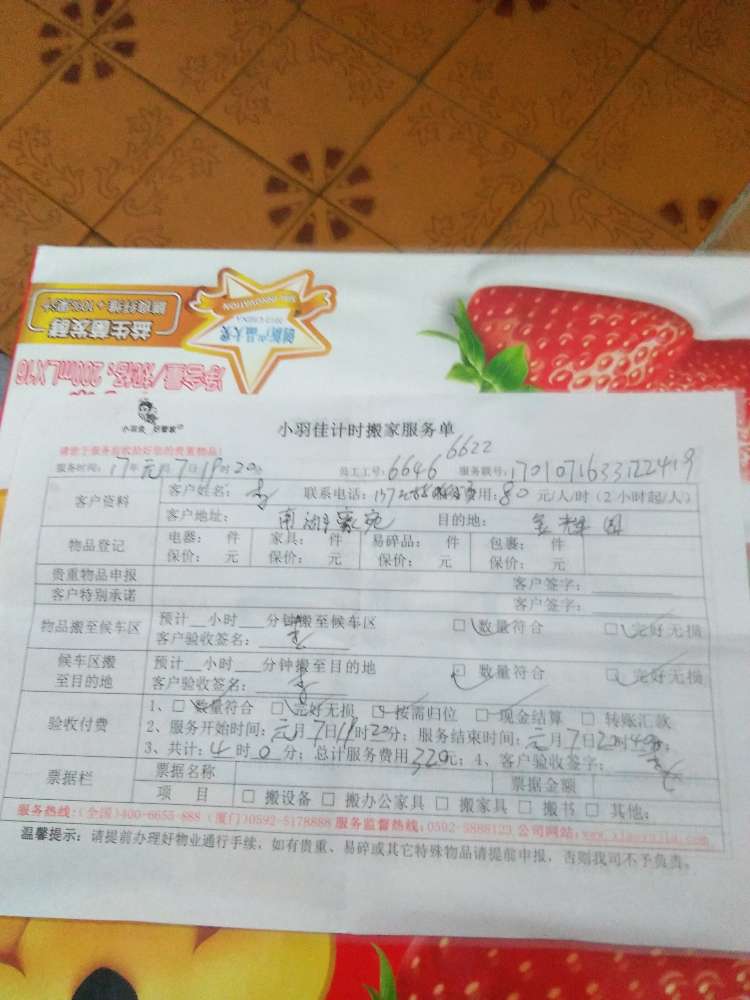 益生菌发酵
MIL INNOVATION
2012 CHINA
创新产品大奖
净含量/规格: 200mLX16
小羽佳 好管家
小羽佳计时搬家服务单
请您于服务前收拾好您的贵重物品!
6622
服务时间: 17年元月7日19时20分 员工工号: 6646 服务联号: 1701071633122419
客户资料 客户姓名: 李 联系电话: 费用: 80 元/人/时(2小时起/人)
客户地址: 南湖豪苑 目的地: 金辉园
物品登记 电器: 件 家具: 件 易碎品: 件 包裹: 件
保价: 元 保价: 元 保价: 元 保价: 元
贵重物品申报 客户签字:
客户特别承诺 客户签字:
物品搬至候车区 预计__小时___分钟搬至候车区 □ 数量符合 □ 完好无损
客户验收签名: 李
候车区搬至目的地 预计__小时___分钟搬至目的地 □ 数量符合 □ 完好无损
客户验收签名: 李
验收付费 1、□ 数量符合 □ 完好无损 □ 按需归位 □ 现金结算 □ 转账汇款
2、服务开始时间: 元月7日19时20分; 服务结束时间: 元月7日
3、共计: 4时0分; 总计服务费用320元; 4、客户验收签字: 李
票据栏 票据名称 票据金额
项 目 □ 搬设备 □ 搬办公家具 □ 搬家具 □ 搬书 □ 其他:
服务热线: (全国)400-6655-888 (厦门)0592-5178888 服务监督热线: 0592-5888123 公司网站: www.xiaoyujia.com
温馨提示: 请提前办理好物业通行手续, 如有贵重、易碎或其它特殊物品请提前申报, 否则我司不予负责。